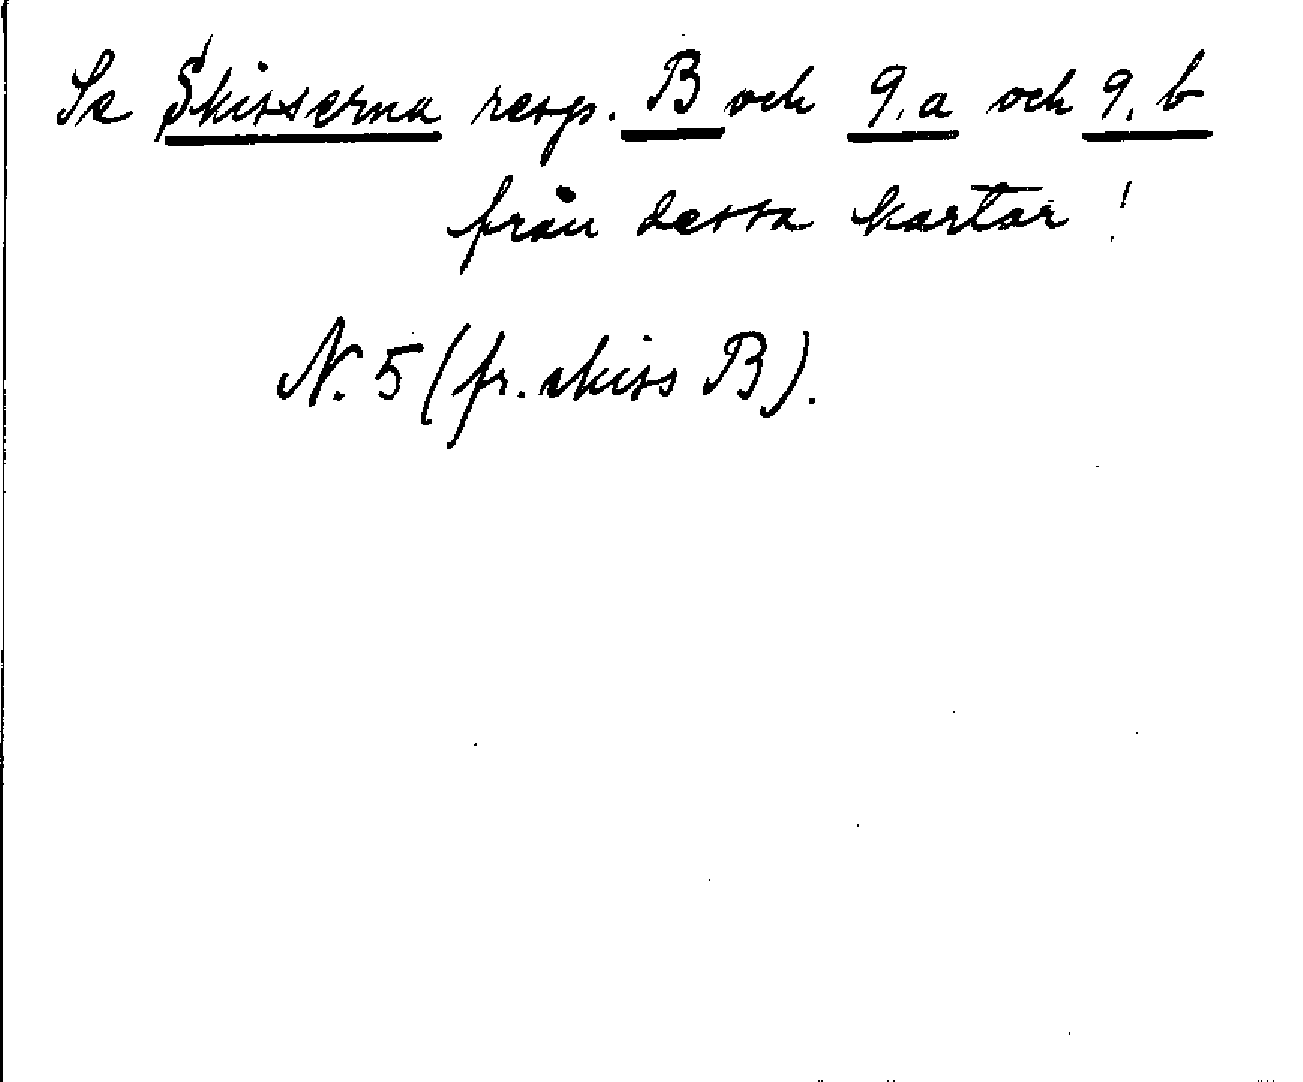 Se Skisserna resp. B och 9.a och 9.b
från dessa kartor!
N. 5 (fr. skiss B).